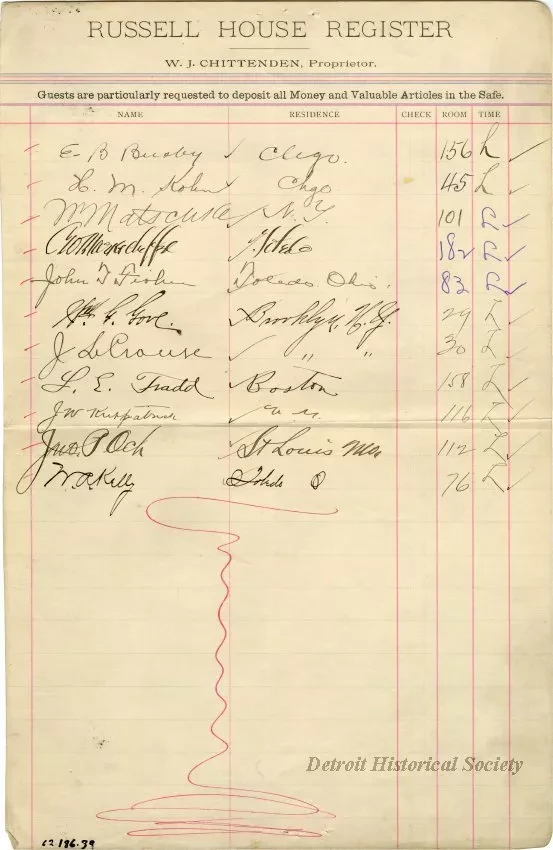 RUSSELL HOUSE REGISTER
W. J. CHITTENDEN, Proprietor.
Guests are particularly requested to deposit all Money and Valuable Articles in the Safe.
NAME RESIDENCE CHECK ROOM TIME
E B Busby ✓ Chgo. 156 L ✓
H. M. Kohn ✓ Chgo 45 L ✓
W Matschke ✓ N.Y. 101 L ✓
Toledo 182 L ✓
John T Fisher Toledo Ohio. 83 L ✓
G. Gove. Brooklyn, N.Y. 29 L ✓
J L Crouse ✓ " " 30 L
L. E. Tradd ✓ Boston 158 L ✓
J W Kirkpatrick ✓ 116 L ✓
Jno. P. Och ✓ St Louis Mo 112 L ✓
W. A. Kelly Toledo O 76 L ✓
Detroit Historical Society